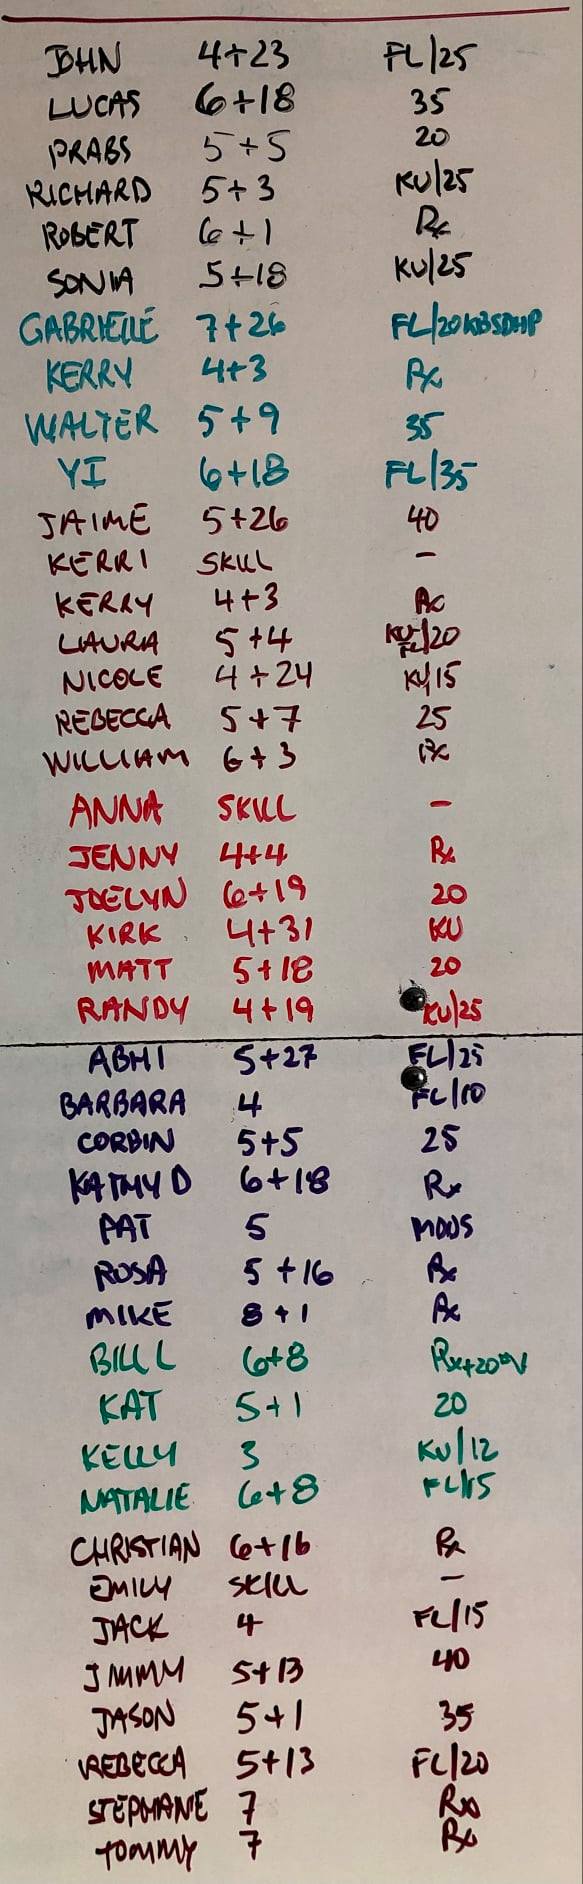 JOHN 4+23 FL/25
LUCAS 6+18 35
PRABS 5+5 20
RICHARD 5+3 KU/25
ROBERT 6+1 Rx
SONIA 5+18 KU/25
GABRIELLE 7+26 FL/20
KERRY 4+3 Rx
WALTER 5+9 35
YI 6+18 FL/35
JAIME 5+26 40
KERRI SKILL -
KERRY 4+3 Rx
LAURA 5+4 KU-FL/20
NICOLE 4+24 KU/15
REBECCA 5+7 25
WILLIAM 6+3 Rx
ANNA SKILL -
JENNY 4+4 Rx
JOELYN 6+19 20
KIRK 4+31 KU
MATT 5+18 20
RANDY 4+19 KU/25
ABHI 5+27 FL/25
BARBARA 4 FL/10
CORBIN 5+5 25
KATHY D 6+18 Rx
PAT 5 MODS
ROSA 5+16 Rx
MIKE 8+1 Rx
BILL 6+8 Rx+20#V
KAT 5+1 20
KELLY 3 KU/12
NATALIE 6+8 FL/15
CHRISTIAN 6+16 Rx
EMILY SKILL -
JACK 4 FL/15
JIMMY 5+13 40
JASON 5+1 35
REBECCA 5+13 FL/20
STEPHANIE 7 Rx
TOMMY 7 Rx